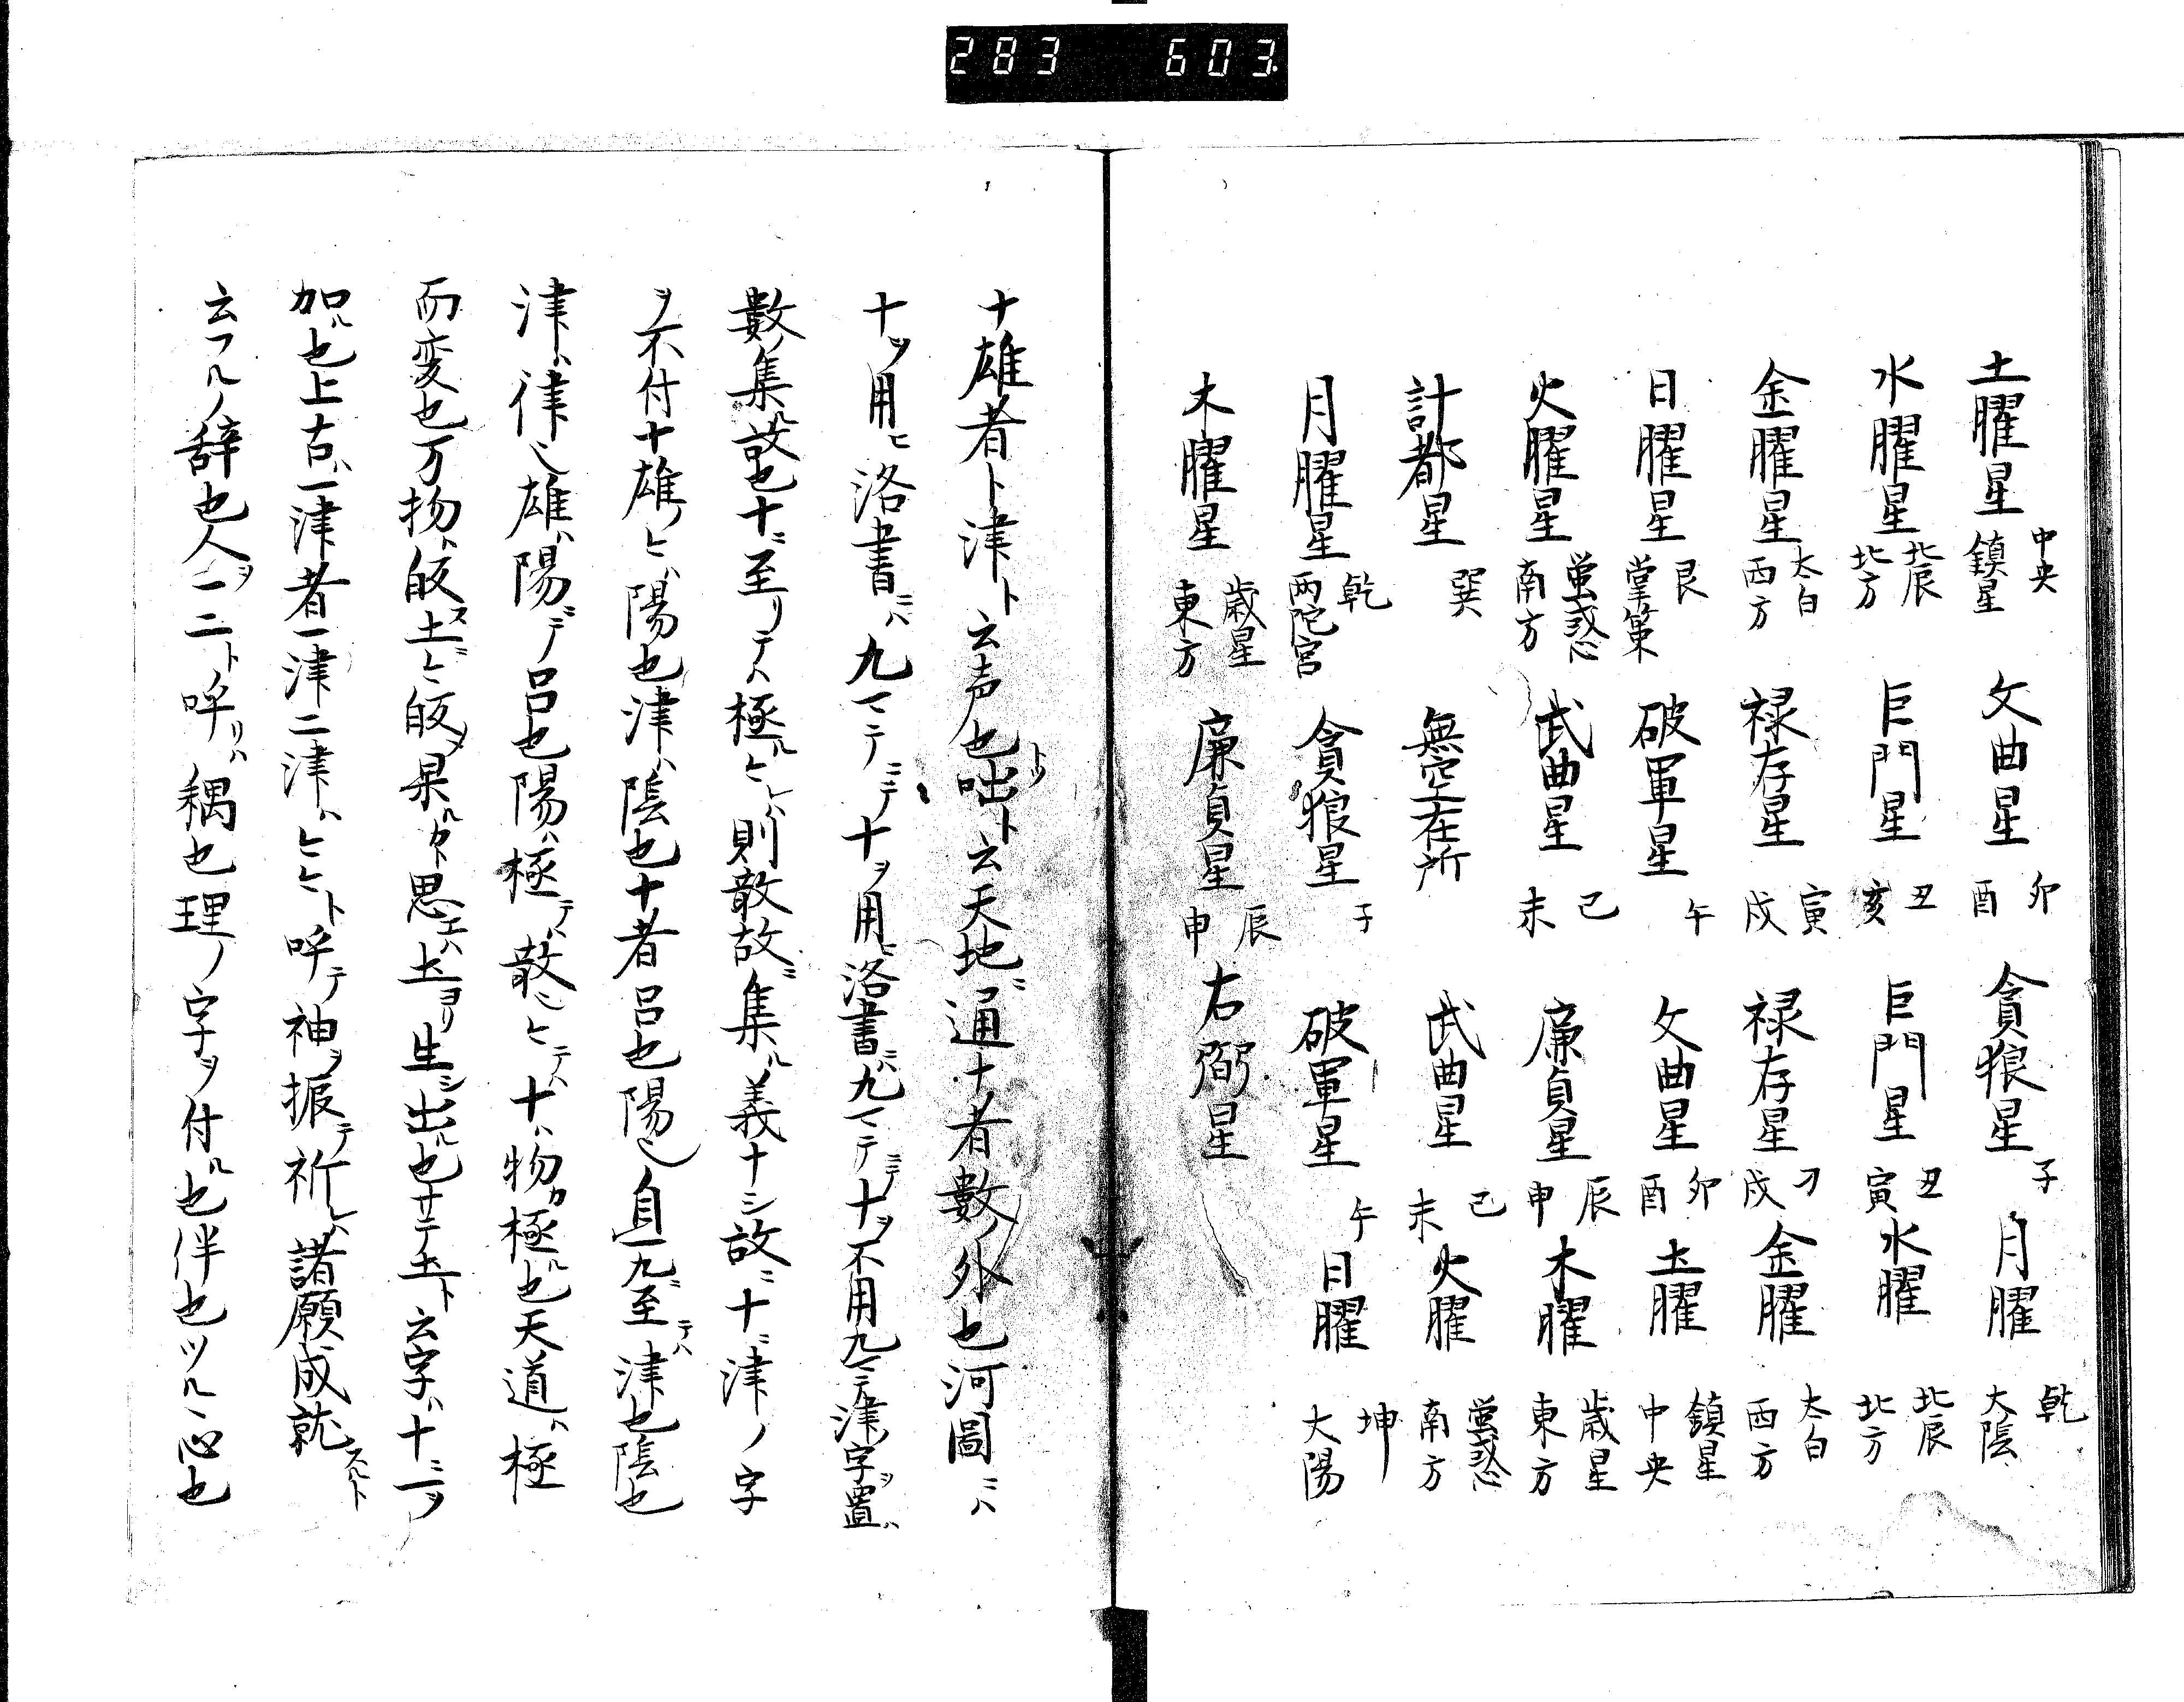 283 603
土曜星 中央 鎮星 文曲星 卯 酉 貪狼星 子 月曜 乾 大陰
水曜星 北辰 北方 巨門星 丑 亥 巨門星 丑 寅 水曜 北辰 北方
金曜星 太白 西方 禄存星 寅 戌 禄存星 刁 戌 金曜 太白 西方
日曜星 艮 掌策 破軍星 午 文曲星 卯 酉 土曜 鎮星 中央
火曜星 蛍惑 南方 武曲星 己 未 廉貞星 辰 申 木曜 歳星 東方
計都星 巽 無空在所 武曲星 己 未 火曜 蛍惑 南方
月曜星 乾 両陀宮 貪狼星 子 破軍星 午 日曜 坤 大陽
木曜星 歳星 東方 廉貞星 辰 申 右弼星
十雄者ト津ト云声也咄トツト云天地ニ通十者數ノ外也河圖ニハ
十ヲ用ヒ洛書ニハ九マテニテ十ヲ用ヒ洛書ニハ九マテニテ十ヲ不用九マテ津ノ字ヲ置ハ
數ノ集ル故也十ニ至リテハ極ル則散故ニ集ル義十シ故ニ十ニ津ノ字
ヲ不付十雄ノヒハ陽也津ハ陰也十者呂也陽也自一九ニ至テハ津也陰也
津ハ律也雄ハ陽ニテ呂也陽ハ極テ散ヒテハ十ハ物カ極ル也天道ハ極
而変也万物ト皈ス土ニ皈メ果ルカト思エハ土ヨリ生シ出ル也サテ土ト云字ハ十ニ一ヲ
加ル也上古ハ一津者一津二津ハヒヒト呼テ袖ヲ振テ祈レハ諸願成就スルト
云フルノ辞也人ヲ一二ト呼リハ耦也理ノ字ヲ付ル也伴也ツルヽ心也